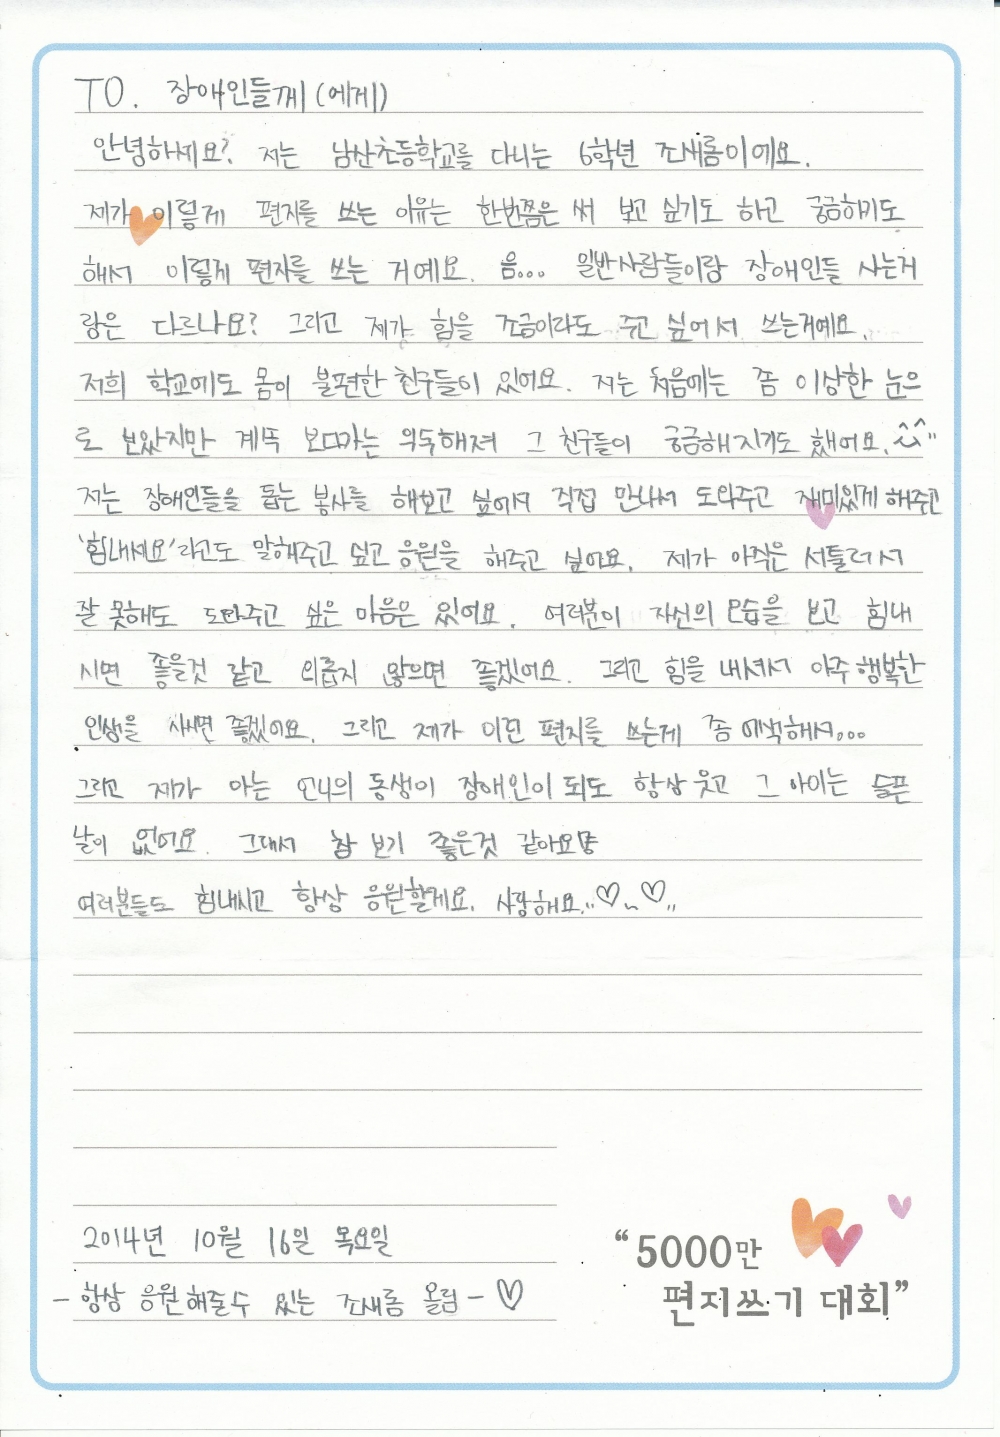 TO. 장애인들께(에게)
안녕하세요? 저는 남산초등학교를 다니는 6학년 조새롬이에요.
제가 이렇게 편지를 쓰는 이유는 한번쯤은 써 보고 싶기도 하고 궁금하기도
해서 이렇게 편지를 쓰는 거예요. 음... 일반사람들이랑 장애인들 사는거
랑은 다르나요? 그리고 제가 힘을 조금이라도 주고 싶어서 쓰는거예요.
저희 학교에도 몸이 불편한 친구들이 있어요. 저는 처음에는 좀 이상한 눈으
로 보았지만 계속 보다가는 익숙해져 그 친구들이 궁금해지기도 했어요.^^"
저는 장애인들을 돕는 봉사를 해보고 싶어서 직접 만나서 도와주고 재미있게 해주고
'힘내세요'라고도 말해주고 싶고 응원을 해주고 싶어요. 제가 아직은 서툴러서
잘 못해도 도와주고 싶은 마음은 있어요. 여러분이 자신의 모습을 보고 힘내
시면 좋을것 같고 외롭지 않으면 좋겠어요. 그리고 힘을 내셔서 아주 행복한
인생을 사시면 좋겠어요. 그리고 제가 이런 편지를 쓰는게 좀 어색해서...
그리고 제가 아는 언니의 동생이 장애인이 되도 항상 웃고 그 아이는 슬픈
날이 없어요. 그래서 참 보기 좋은것 같아요
여러분들도 힘내시고 항상 응원할게요. 사랑해요.♡~♡
2014년 10월 16일 목요일
- 항상 응원해줄수 있는 조새롬 올림 - ♡
“5000만
편지쓰기 대회”